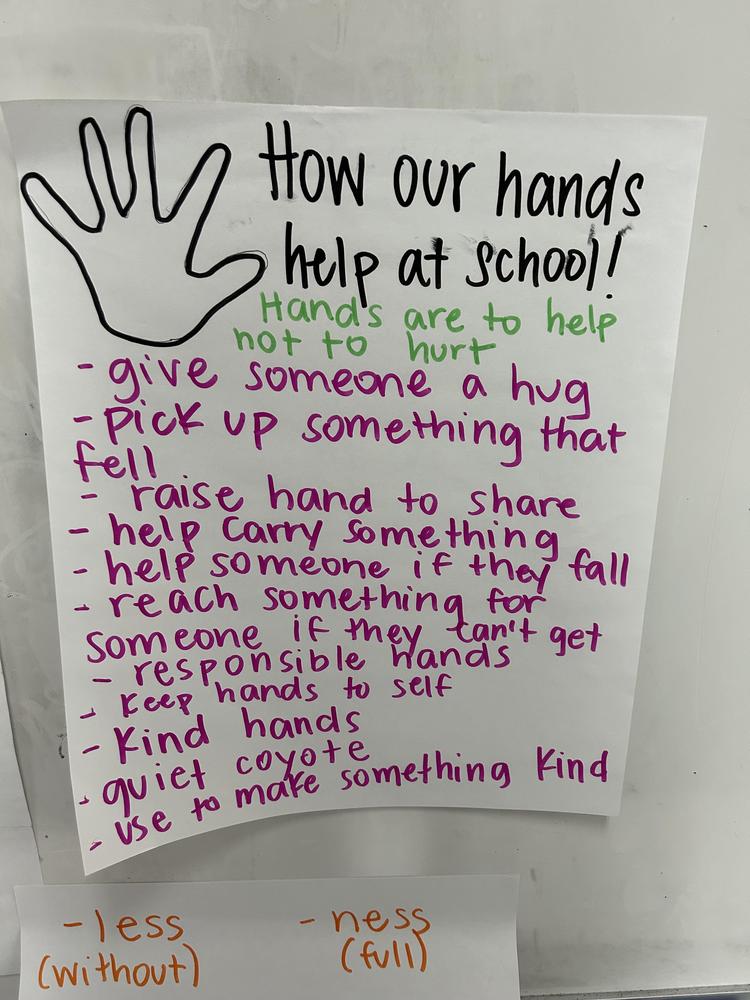 How our hands
help at school!
Hands are to help
not to hurt
- give someone a hug
- pick up something that
fell
- raise hand to share
- help carry something
- help someone if they fall
- reach something for
someone if they can't get
- responsible hands
- keep hands to self
- kind hands
- quiet coyote
- use to make something kind
- less - ness
(without) (full)